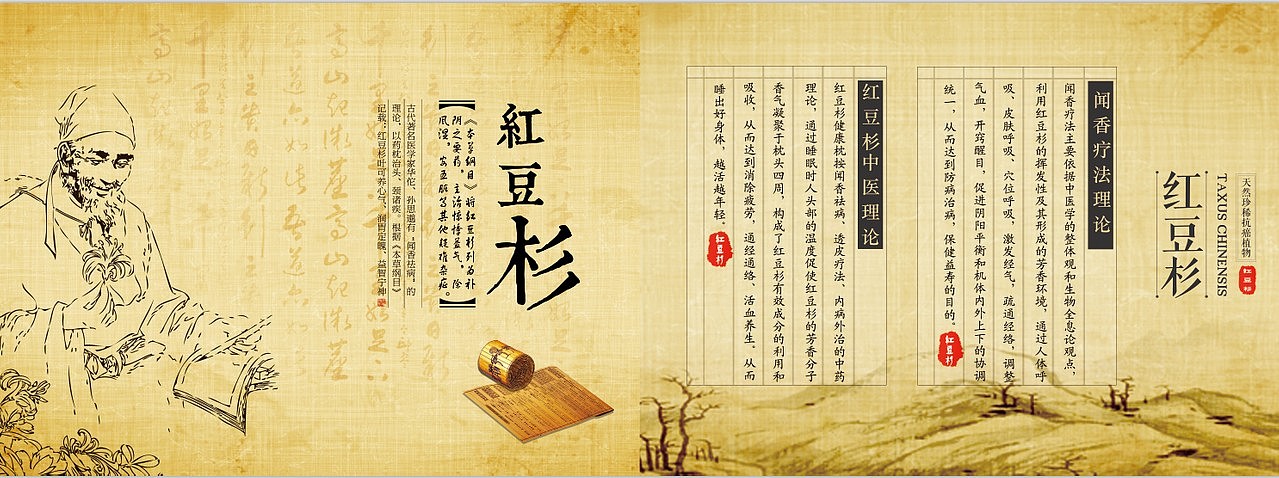 紅豆杉
《本草纲目》将红豆杉列为补
阴之要药，主治惊悸益气，除
风湿，安五脏等其他疑难杂症。
古代著名医学家华佗、孙思邈有“闻香祛病”的
理论，以药枕治头、颈诸疾。根据《本草纲目》
记载：红豆杉叶可养心气、润胃定魄、益智宁神
天然珍稀抗癌植物
红豆杉
TAXUS CHINENSIS
红豆杉
闻香疗法理论
闻香疗法主要依据中医学的整体观和生物全息论观点，
利用红豆杉的挥发性及其形成的芳香环境，通过人体呼
吸、皮肤呼吸、穴位呼吸，激发经气，疏通经络，调整
气血，开窍醒目，促进阴阳平衡和机体内外上下的协调
统一，从而达到防病治病，保健益寿的目的。
红豆杉
红豆杉中医理论
红豆杉健康枕按闻香祛病、透皮疗法、内病外治的中药
理论，通过睡眠时人头部的温度促使红豆杉的芳香分子
香气凝聚于枕头四周，构成了红豆杉有效成分的利用和
吸收，从而达到消除疲劳，通经通络、活血养生。从而
睡出好身体，越活越年轻。
红豆杉